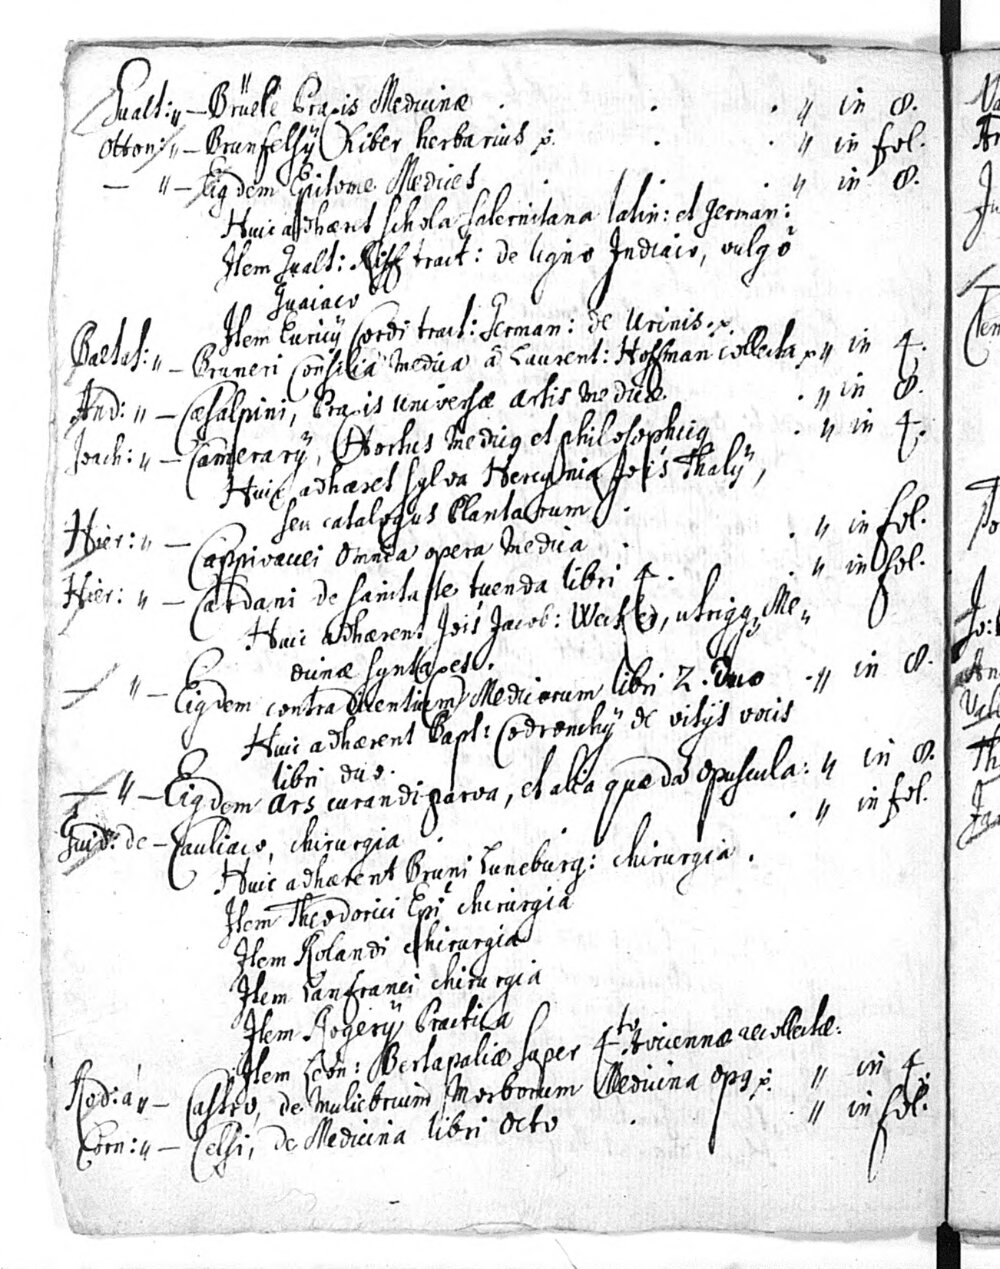 Gualt: „ — Brüele Praxis Medicinæ . . . „ in 8.
Otton: „ — Brunfelsÿ Liber herbarius p. . . „ in fol.
— „ — Eiusdem Epitome Medices . „ in 8.
Huic adhæret schola salernitana latin: et German:
Item Gualt: Riff tract: de ligno Indiaco, vulgò
Guaiaco
Item Euricÿ Cordi tract: German: de Urinis. p.
Baltas: „ — Bruneri Consilia Medica à Laurent: Hoffman collecta p „ in 4.
And: „ — Cæsalpini, Praxis universæ artis Medicæ . „ in 8.
Joach: „ — Camerarÿ, Hortus Medicus et philosophicus . „ in 4.
Huic adhæret sylva Hercynia Jois Thalÿ,
seu catalogus Plantarum .
Hier: „ — Cappivaccei omnia opera Medica . . „ in fol.
Hier: „ — Cardani de sanitate tuenda libri 4. . „ in fol.
Huic adhærent Jois Jacob: utriusq, Me„
dicinæ syntaxes.
— „ — Eiusdem contradicentium Medicorum libri 2. Duo . „ in 8.
Huic adhærent Bapt: Codronchÿ de vitÿs vocis
libri duo.
— „ — Eiusdem Ars curandi parva, et alia quædã opuscula: „ in 8.
Guid: de — Cauliaco, chirurgia . . „ in fol.
Huic adhærent Bruni Luneburg: chirurgia .
Item Theodorici Epi chirurgia
Item Rolandi chirurgia
Item Lanfranci chirurgia
Item Rogerÿ Practica
Item Leon: Bertapaliæ super 4.to Avicennæ recollectæ:
Rod: á „ — Castro, de Muliebrium Morborum Medicina opus p. „ in 4.
Corn: „ — Celsi, de Medicina libri octo . . „ in fol.